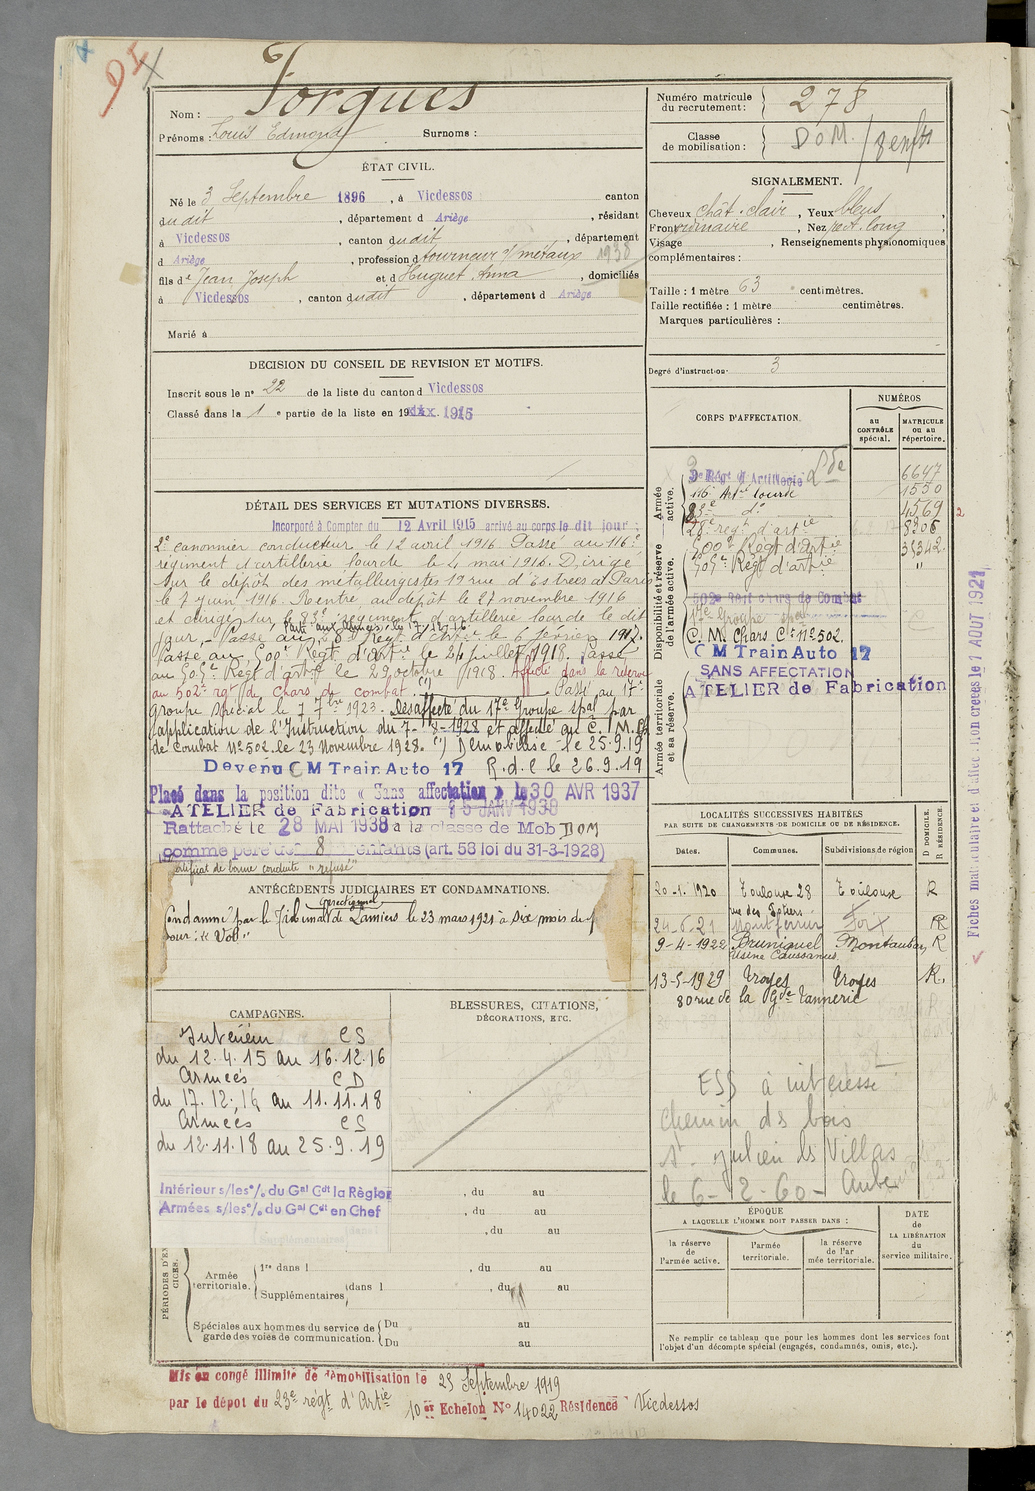 95
Nom : Forgues
Prénoms : Louis Edmond Surnoms :
Numéro matricule du recrutement : 278
Classe de mobilisation : DOM / 8 enfts
ÉTAT CIVIL.
Né le 3 Septembre 1896, à Vicdessos canton
dudit, département d Ariège, résidant
à Vicdessos, canton dudit, département
d Ariège, profession d tourneur s/ métaux 1938
fils de Jean Joseph et d Huguet Anna, domiciliés
à Vicdessos, canton dudit, département d Ariège
Marié à
SIGNALEMENT.
Cheveux chât. clair, Yeux bleus,
Front ordinaire, Nez rect. long,
Visage , Renseignements physionomiques
complémentaires :
Taille : 1 mètre 63 centimètres.
Taille rectifiée : 1 mètre centimètres.
Marques particulières :
Degré d'instruction : 3
DECISION DU CONSEIL DE REVISION ET MOTIFS.
Inscrit sous le n° 22 de la liste du canton d Vicdessos
Classé dans la 1e partie de la liste en 19 1915
DÉTAIL DES SERVICES ET MUTATIONS DIVERSES.
Incorporé à Compter du 12 Avril 1915 arrivé au corps le dit jour ;
2e canonnier conducteur le 12 avril 1916 Passé au 116e
régiment d'artillerie lourde le 4 mai 1916. Dirigé
sur le dépôt des métallurgistes 19 rue d'Estrées at Paris
le 7 juin 1916. Rentré au dépôt le 27 novembre 1916
et dirigé sur le 83e régiment d'artillerie lourde le dit
jour. Parti aux Armées le 17-12-16
Passé au 28e Régt d'Artie le 6 février 1917.
Passé au 500e Regt. d'artie le 24 juillet 1918. Passé
au 505e Regt d'artie le 29 octobre 1918. Affecté dans la réserve
au 502e rgt de chars de combat. (") Passé au 17e
groupe spécial le 7 7bre 1923. Desaffecté du 17e Groupe spal par
application de l'Instruction du 7-8-1928 et affecté au C. M. Ch
de combat N° 502 le 23 Novembre 1928. (") Démobilisé le 25.9.19
Devenu C M Train Auto 17 R.d.C le 26.9.19
Placé dans la position dite « Sans affectation » le 30 AVR 1937
ATELIER de Fabrication 15 JANV 1938
Rattaché le 28 MAI 1938 à la classe de Mob DOM
comme père de 8 enfants (art. 58 loi du 31-3-1928)
Certificat de bonne conduite "refusé"
CORPS D'AFFECTATION.
NUMÉROS
au CONTRÔLE spécial.
MATRICULE ou au répertoire.
Armée active.
Disponibilité et réserve de l'armée active.
Armée territoriale et sa réserve.
3e Régt d'Artillerie 6647
116e Artie lourde 1550
83e do 4569
28e regt d'artie 8206
500e Regt d'artie 35342
505e Régt d'artie "
502e Rgt chars de Combat
17e Groupe spal
C. M. Chars Ct N° 502.
C M Train Auto 17
SANS AFFECTATION
ATELIER de Fabrication
Fiches matriculaire et d'affectation créées le 1 AOUT 1921
ANTÉCÉDENTS JUDICIAIRES ET CONDAMNATIONS.
Condamné par le Tribunal Correctionnel de Pamiers le 23 mars 1921 à six mois de p
pour : "Vol"
LOCALITÉS SUCCESSIVES HABITÉES
PAR SUITE DE CHANGEMENTS DE DOMICILE OU DE RÉSIDENCE.
Dates. Communes. Subdivisions de région D DOMICILE. R RÉSIDENCE.
20-1-1920 Toulouse 28 rue des Potiers Toulouse R
24-6-21 Montferrier Foix R
9-4-1922 Bruniquel Usine Caussanus Montauban R
13-5-1929 Troyes Troyes R.
80 rue de la Gde Tannerie
ESS à intéressé
chemin ds bois
St Julien ls Villas
le 6-2-60- Aube
CAMPAGNES.
Intérieur CS
du 12.4.15 au 16.12.16
Armées CD
du 17.12.16 au 11.11.18
Armées CS
du 12.11.18 au 25.9.19
Intérieur s/les% du Gal Cdt la Région
Armées s/les% du Gal Cdt en Chef
BLESSURES, CITATIONS,
DÉCORATIONS, ETC.
, du au
, du au
, du au
PÉRIODES D'EX
CICES.
Armée territoriale. 1re dans l , du au
Supplémentaires dans l , du au
Spéciales aux hommes du service de garde des voies de communication. Du au
Du au
ÉPOQUE
A LAQUELLE L'HOMME DOIT PASSER DANS :
la réserve de l'armée active.
l'armée territoriale.
la réserve de l'armée territoriale.
DATE de LA LIBÉRATION du service militaire.
Ne remplir ce tableau que pour les hommes dont les services font
l'objet d'un décompte spécial (engagés, condamnés, omis, etc.).
Mis en congé illimité de démobilisation le 25 Septembre 1919
par le dépot du 23e régt d'Artie 10e Echelon N° 14022 Résidence Vicdessos